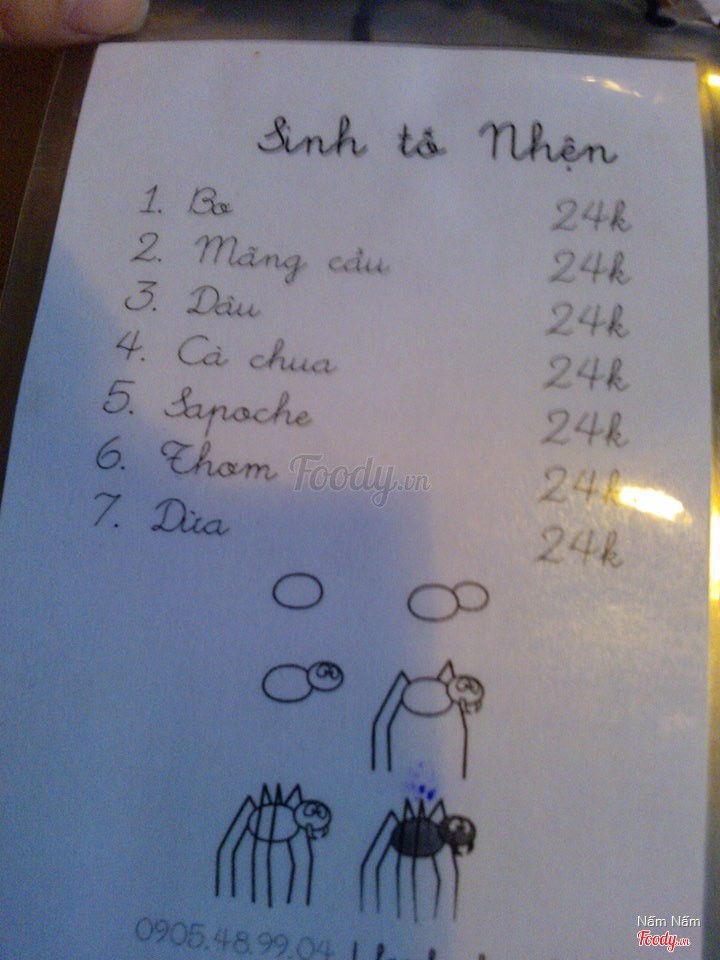 Sinh tố Nhện
1. Bơ 24k
2. Mãng cầu 24k
3. Dâu 24k
4. Cà chua 24k
5. Sapoche 24k
6. Thơm 24k
7. Dừa 24k
Foody.vn
0905.48.99.04
Nấm Nấm
Foody.vn